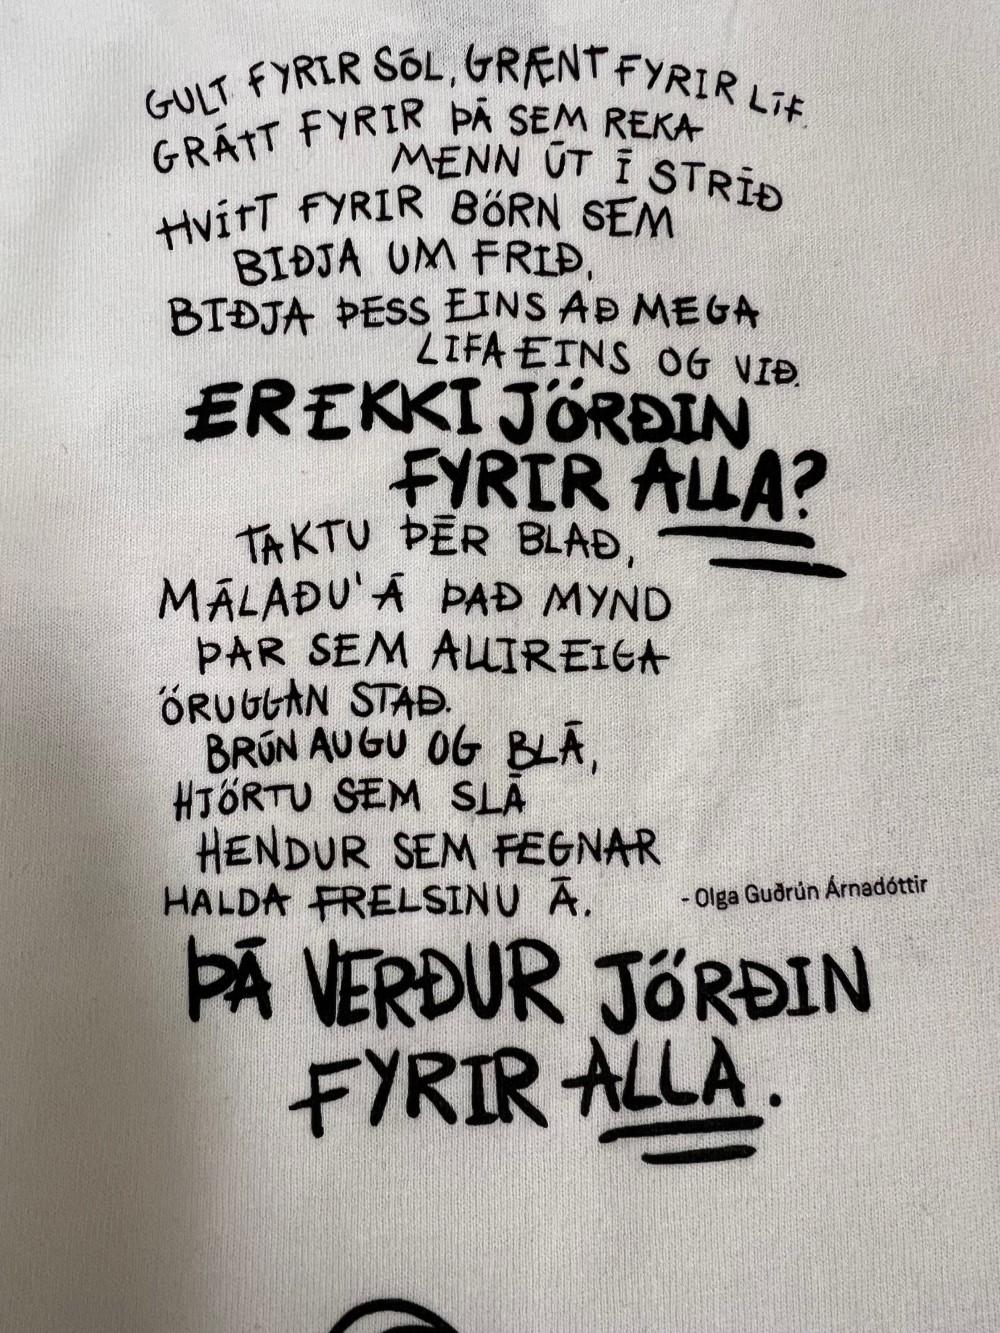 GULT FYRIR SÓL, GRÆNT FYRIR LÍF.
GRÁTT FYRIR ÞÁ SEM REKA
MENN ÚT Í STRÍÐ
HVÍTT FYRIR BÖRN SEM
BIÐJA UM FRIÐ,
BIÐJA ÞESS EINS AÐ MEGA
LIFA EINS OG VIÐ.
ER EKKI JÖRÐIN
FYRIR ALLA?
TAKTU ÞÉR BLAÐ,
MÁLAÐU'Á ÞAÐ MYND
ÞAR SEM ALLIR EIGA
ÖRUGGAN STAÐ.
BRÚN AUGU OG BLÁ,
HJÖRTU SEM SLÁ
HENDUR SEM FEGNAR
HALDA FRELSINU Á.
- Olga Guðrún Árnadóttir
ÞÁ VERÐUR JÖRÐIN
FYRIR ALLA.